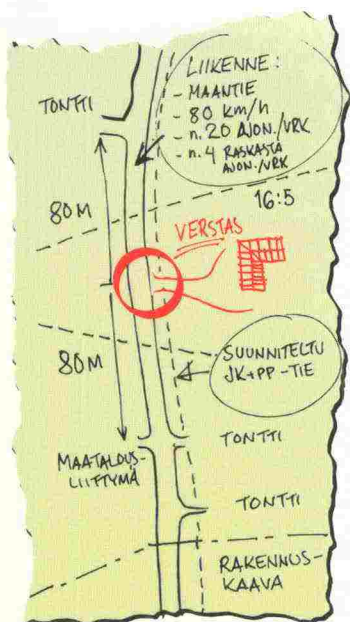 LIIKENNE:
- MAANTIE
- 80 km/h
- n. 20 AJON./VRK
- n. 4 RASKASTA
AJON./VRK
TONTTI
16:5
80M
VERSTAS
80M
SUUNNITELTU
JK+PP-TIE
TONTTI
MAATALOUS-
LIITTYMÄ
TONTTI
RAKENNUS-
KAAVA